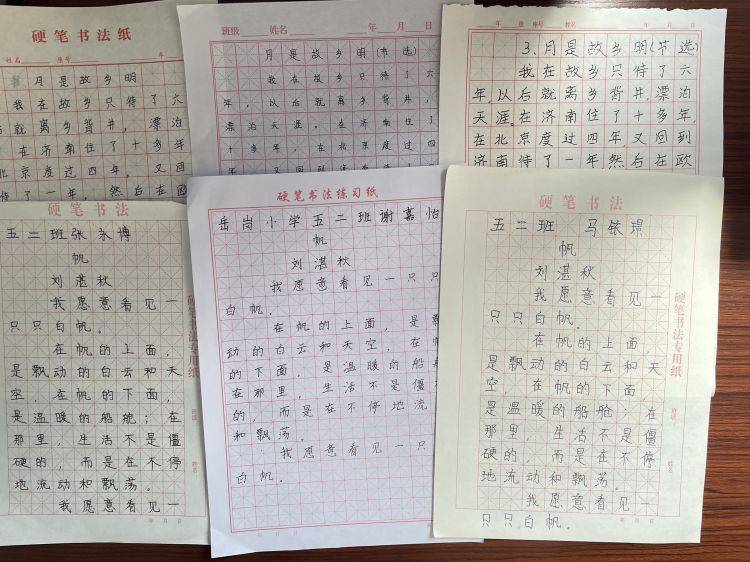 硬笔书法纸
姓名 座号 年
月是故乡明
我在故乡只待了六
后就离乡背井，漂泊
在济南住了十多年
北京度过四年，又回
了一年，然后在欧
班级 姓名 年 月 日
月是故乡明(节选)
我在故乡只待了六
年，以后就离乡背井，
漂泊天涯。在济南住了
十多年，在北京度过四
年 班 座号 姓名
3、月是故乡明(节选)
我在故乡只待了六
年，以后就离乡背井，漂泊
天涯。在济南住了十多年，
在北京度过四年，又回到
济南待了一年然后在欧
硬笔书法
五二班张永博
帆
刘湛秋
我愿意看见一
只只白帆。
在帆的上面，
是飘动的白云和天
空，在帆的下面，
是温暖的船舱；在
那里，生活不是僵
硬的，而是在不停
地流动和飘荡。
我愿意看见一
硬笔书法专用纸
班级
姓名
年 月 日
硬笔书法练习纸
岳岗小学五二班谢嘉怡
帆
刘湛秋
我愿意看见一只只
白帆。
在帆的上面，是飘
动的白云和天空，在帆
的下面，是温暖的船舱
在那里，生活不是僵
的，而是在不停地流
和飘荡。
我愿意看见一只
白帆。
硬笔书法
五二班 马铱璟
帆
刘湛秋
我愿意看见一
只只白帆。
在帆的上面
是飘动的白云和天
空，在帆的下面，
是温暖的船舱；在
那里 生活不是僵
硬的 而是在不停
地流动和飘荡。
我愿意看见一
只只白帆。
硬笔书法专用纸
班级
姓名
年 月 日